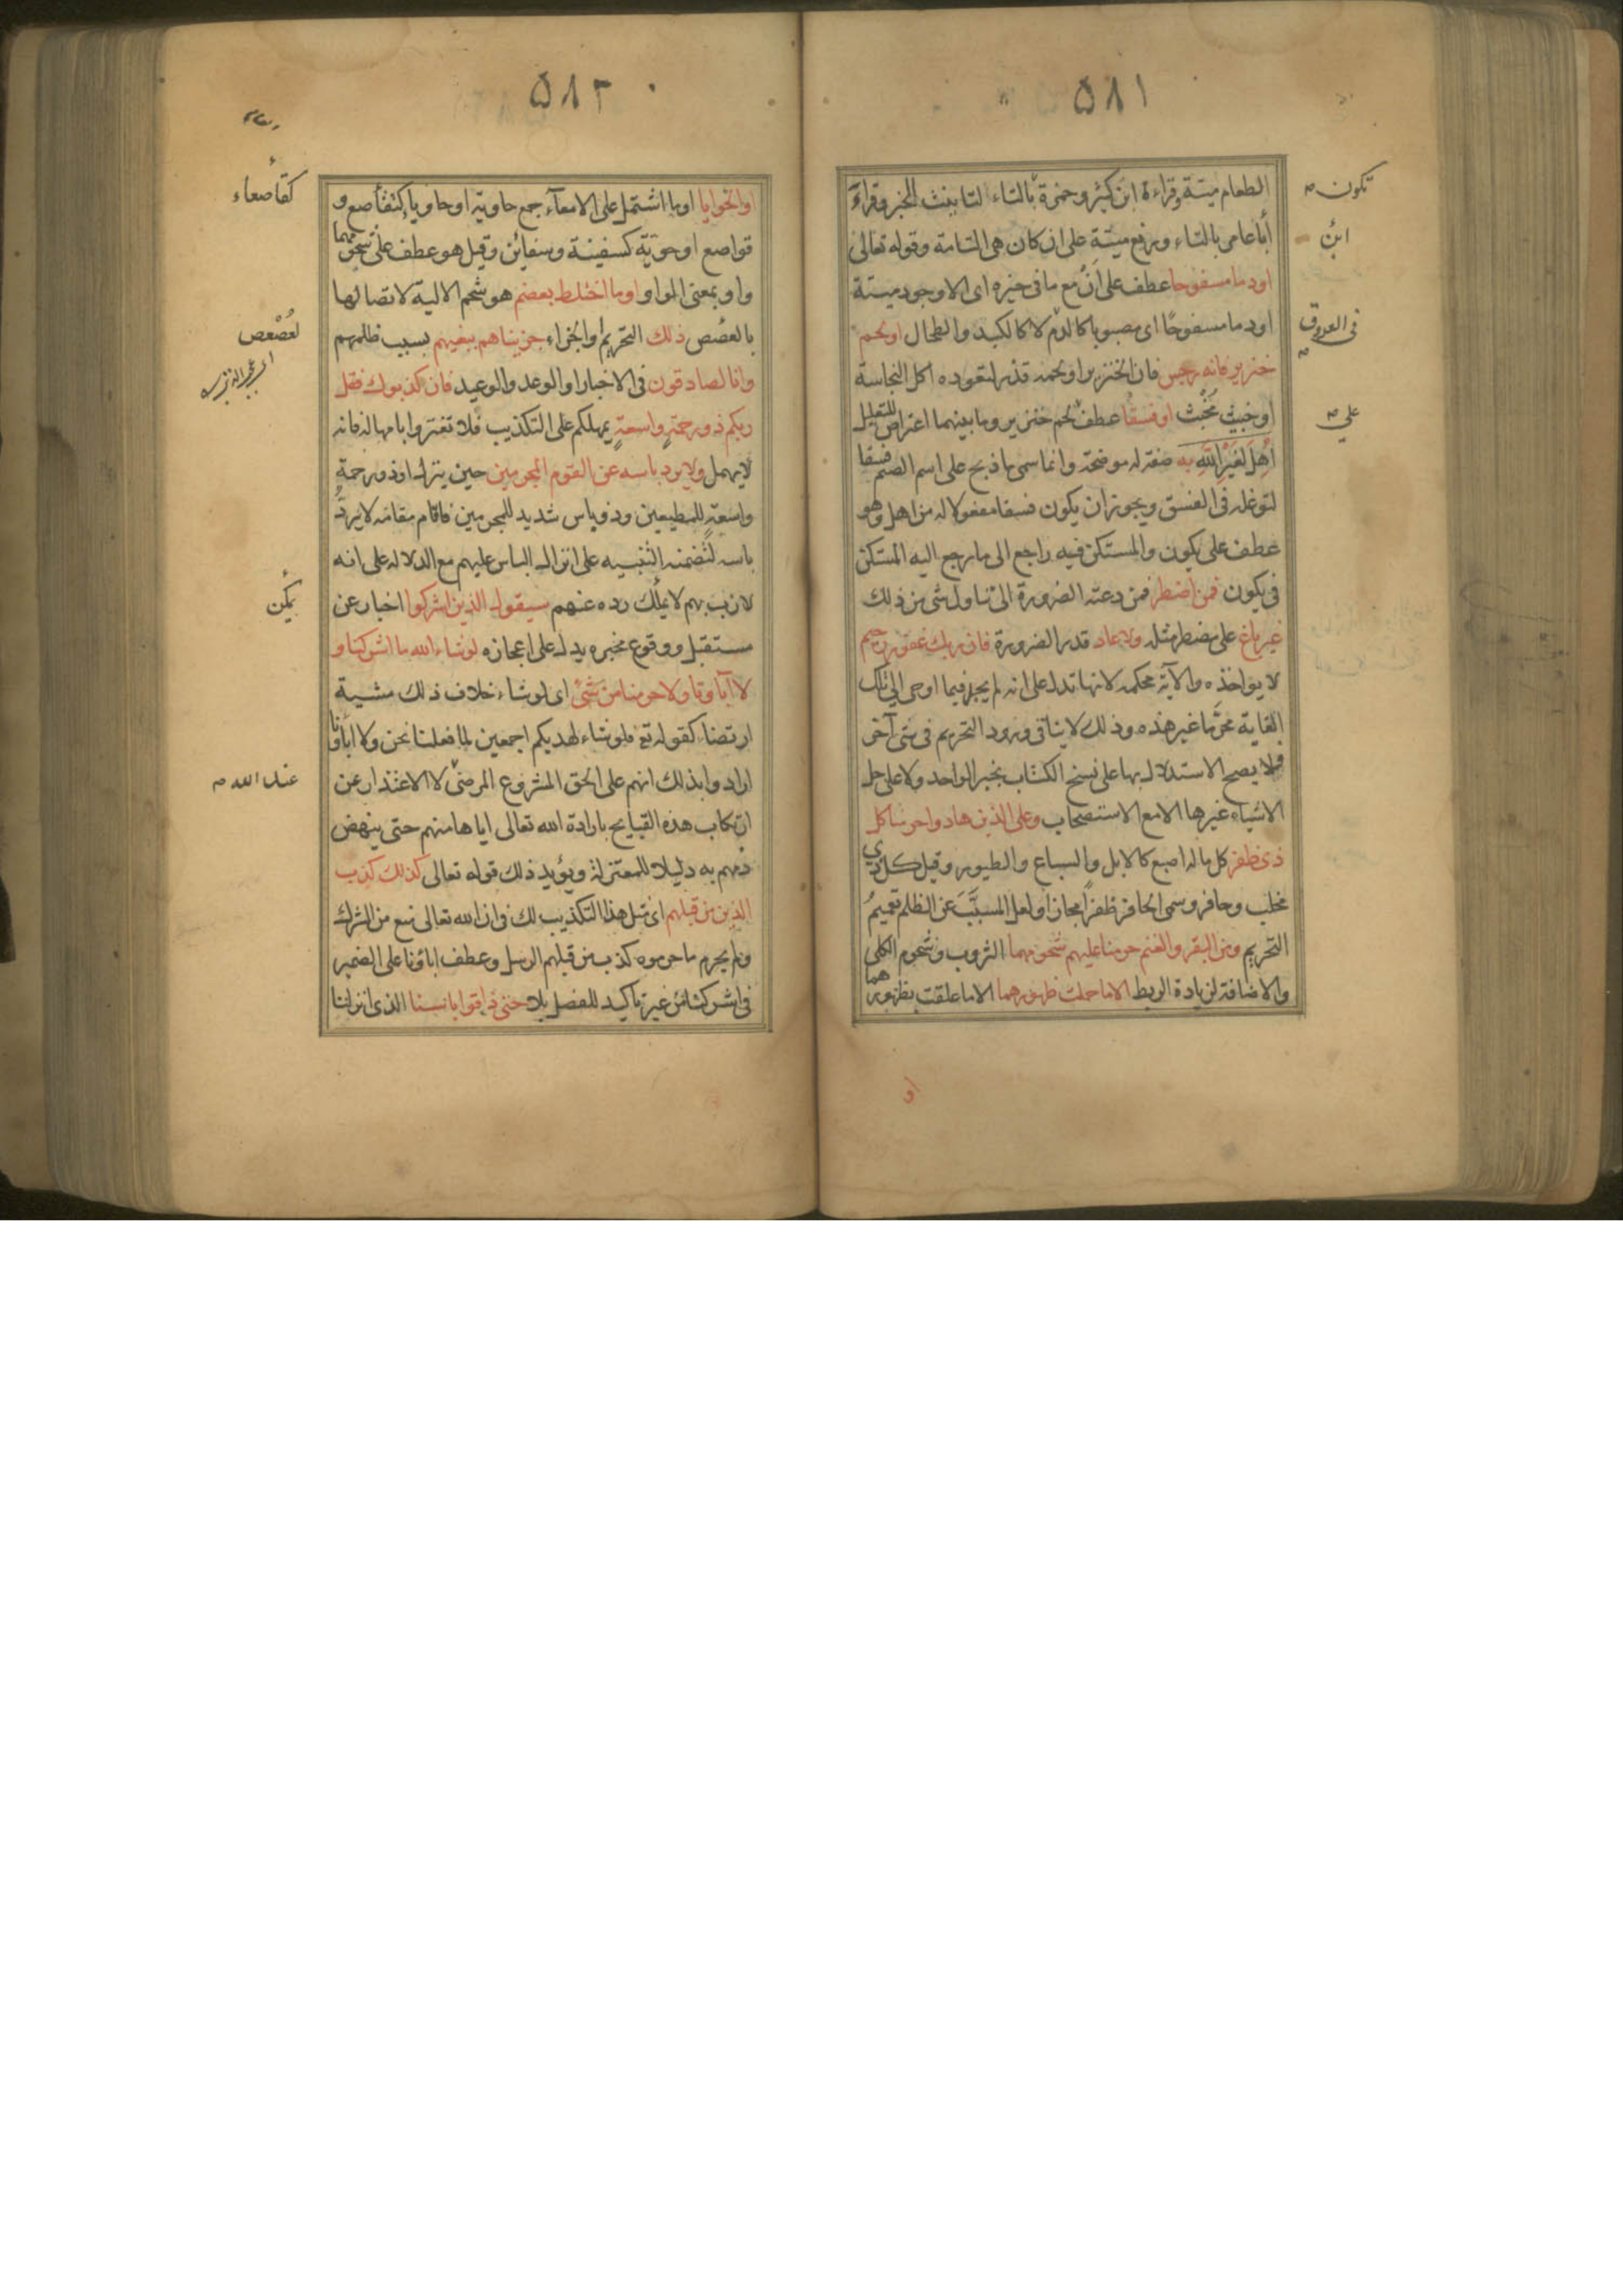 ۵۸۱
الطعام ميتة وقراءة ابن كثير وحمزة بالتاء لتانيث الخبر وقراءَ
تكون
أبا عامر بالتاء ورفع ميتةِ على ان كان هى التامة وقوله تعالى
ابن
او دما مسفوحا عطف على انْ مع ما فى حيزه اى الا وجود ميتة
او دما مسفوحًا اى مصبوبا كالدم لا كالكبد والطحال او لحم
فى العروق
خنزير فانه رجس فان الخنزير او لحمه قذر لتعوده اكل النجاسة
او خبيث مَخْبث او فسقًا عطف لحم خنزير وما بينهما اعتراض للتعليل
على
اُهِلَ لغَيْرِ اللّهِ به صفة له موضحة وانما سمى ما ذبح على اسم الصنم فسقا
لتوغله فى الفسق ويجوز ان يكون فسقا مفعولا له من اهل وهو
عطف على يكون والمستكن فيه راجع الى ما رجع اليه المستكن
فى يكون فمن اضطر فمن دعته الضرورة الى تناول شى من ذلك
غير باغ على مضطر مثله ولا عاد قدر الضرورة فان ربك غفور رحيم
لا يواخذه والآية محكمة لانها تدل على انه لم يجد فيما اوحى الى تلك
الغاية محرّما غير هذه وذلك لا ينافى ورود التحريم فى شى آخر
فلا يصح الاستدلال بها على نسخ الكتاب بخبر الواحد ولا على حل
الاشياء غيرها الا مع الاستصحاب وعلى الذين هادوا حرمنا كل
ذى ظفر كل ما له اصبع كالابل والسباع والطيور وقيل كل ذى
مخلب وحافر وسمى الحافر ظفرًا مجازا ولعل المسبَّبَ عن الظلم تعميمُ
التحريم ومن البقر والغنم حرمنا عليهم شحومهما الثروب وشحوم الكلى
والاضافة لزيادة الربط الا ما حملت ظهورهما الا ما علقت بظهورهما
او
۵۸۲
او الحوايا او ما اشتمل على الامعآء جمع حاوية او حاويا كنفاصع و
كقاصعاء
قواصع او حوية كسفينة وسفائن وقيل هو عطف على شحومهما
واو بمعنى الواو او ما اختلط بعضم هو شحم الالية لاتصالها
بالعصص ذلك التحريم او الجزاء جزيناهم ببغيهم بسبب ظلمهم
لعُصْعص
وانا لصادقون فى الاخبار او الوعد والوعيد فان كذبوك فقل
ربكم ذو رحمةٍ واسعةٍ يمهلكم على التكذيب فلا تغتروا بامهاله فانه
لا يهمل ولا يرد باسه عن القوم المجرمين حين ينزل او ذو رحمة
واسعةٍ للمطيعين وذو باس شديد للمجرمين فاقام مقامه لا يردُّ
باسه لتضمنه التنبيه على انزال الباس عليهم مع الدلالة على انه
لازب بهم لا يملك رده عنهم سيقول الذين اشركوا اخبار عن
يمكن
مستقبل ووقوع مخبره يدل على اعجازه لو شاء الله ما اشركنا و
لا آباؤنا ولا حرمنا من شىْ اى لو شاء خلاف ذلك مشية
ارتضاء كقوله تع فلو شاء لهديكم اجمعين لما فعلنا نحن ولا اباؤنا
ارادوا بذلك انهم على الحق المشروع المرضىّ لا الاعتذار عن
عند الله
ارتكاب هذه القبايح بارادة الله تعالى اياها منهم حتى ينهض
ذمهم به دليلا للمعتزلة ويؤيد ذلك قوله تعالى كذلك كذب
الذين من قبلهم اى مثل هذا التكذيب لك فى ان الله تعالى منع من الشرك
ولم يحرم ما حرموه كذب من قبلهم الرسل وعطف اباؤنا على الضمير
فى اشركنا من غير تاكيد للفصل بلا حتى ذاقوا باسنا الذى انزلنا